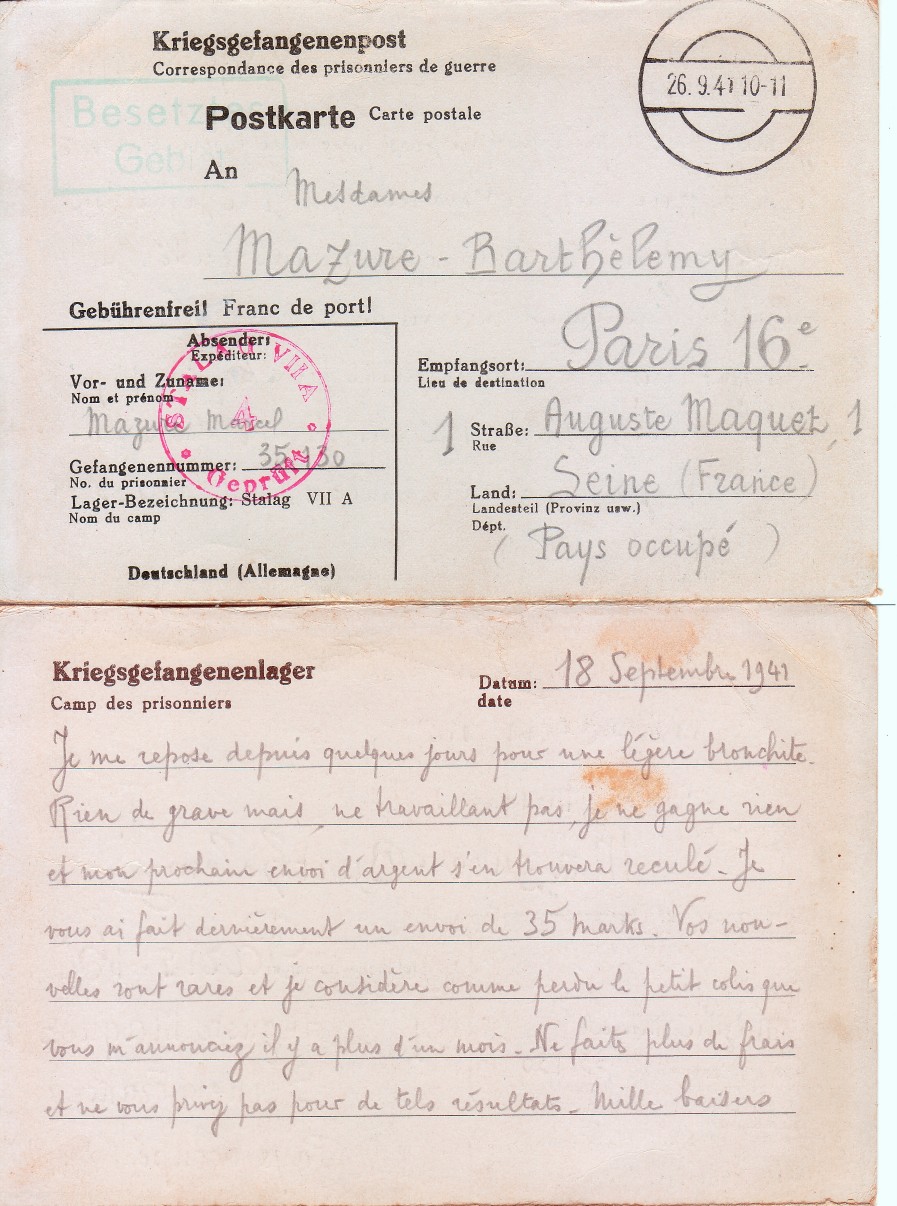 Kriegsgefangenenpost
Correspondance des prisonniers de guerre
26.9.41 10-11
Besetztes
Gebiet
Postkarte Carte postale
An
Mesdames
Mazure - Barthèlemy
Gebührenfrei! Franc de port!
Absender:
Expéditeur:
Vor- und Zuname:
Nom et prénom
Mazure Marcel
Gefangenennummer: 35430
No. du prisonnier
Lager-Bezeichnung: Stalag VII A
Nom du camp
Deutschland (Allemagne)
STALAG VII A
4
Geprüft
Empfangsort: Paris 16e
Lieu de destination
1 Straße: Auguste Maquet, 1
Rue
Land: Seine (France)
Landesteil (Provinz usw.)
Dépt.
( Pays occupé )
Kriegsgefangenenlager
Camp des prisonniers
Datum: 18 Septembre 1941
date
Je me repose depuis quelques jours pour une légère bronchite.
Rien de grave mais, ne travaillant pas, je ne gagne rien
et mon prochain envoi d'argent s'en trouvera reculé. Je
vous ai fait dernièrement un envoi de 35 marks. Vos nou-
velles sont rares et je considère comme perdu le petit colis que
vous m'annonciez il y a plus d'un mois. Ne faites plus de frais
et ne vous privez pas pour de tels résultats. Mille baisers